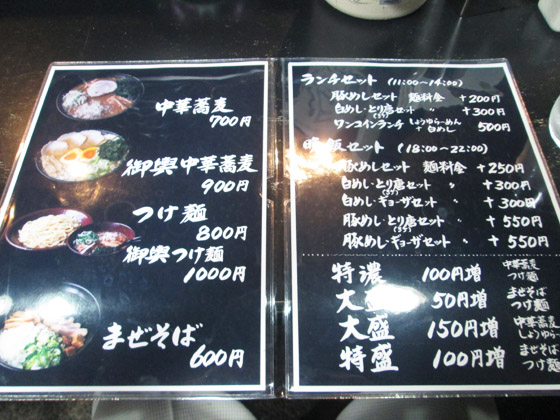 中華蕎麦
700円
御輿中華蕎麦
900円
つけ麺
800円
御輿つけ麺
1000円
まぜそば
600円
ランチセット (11:00~14:00)
豚めしセット 麺料金 +200円
白めし・とり唐セット 〃 +300円
ワンコインランチ しょうゆらーめん+白めし 500円
晩飯セット (18:00~22:00)
豚めしセット 麺料金 +250円
白めし・とり唐セット 〃 +300円
白めし・ギョーザセット 〃 +300円
豚めし・とり唐セット 〃 +550円
豚めし・ギョーザセット 〃 +550円
特濃 100円増 中華蕎麦 つけ麺
大盛 50円増 まぜそば つけ麺
大盛 150円増 中華蕎麦 しょうゆらー
特盛 100円増 まぜそば つけ麺